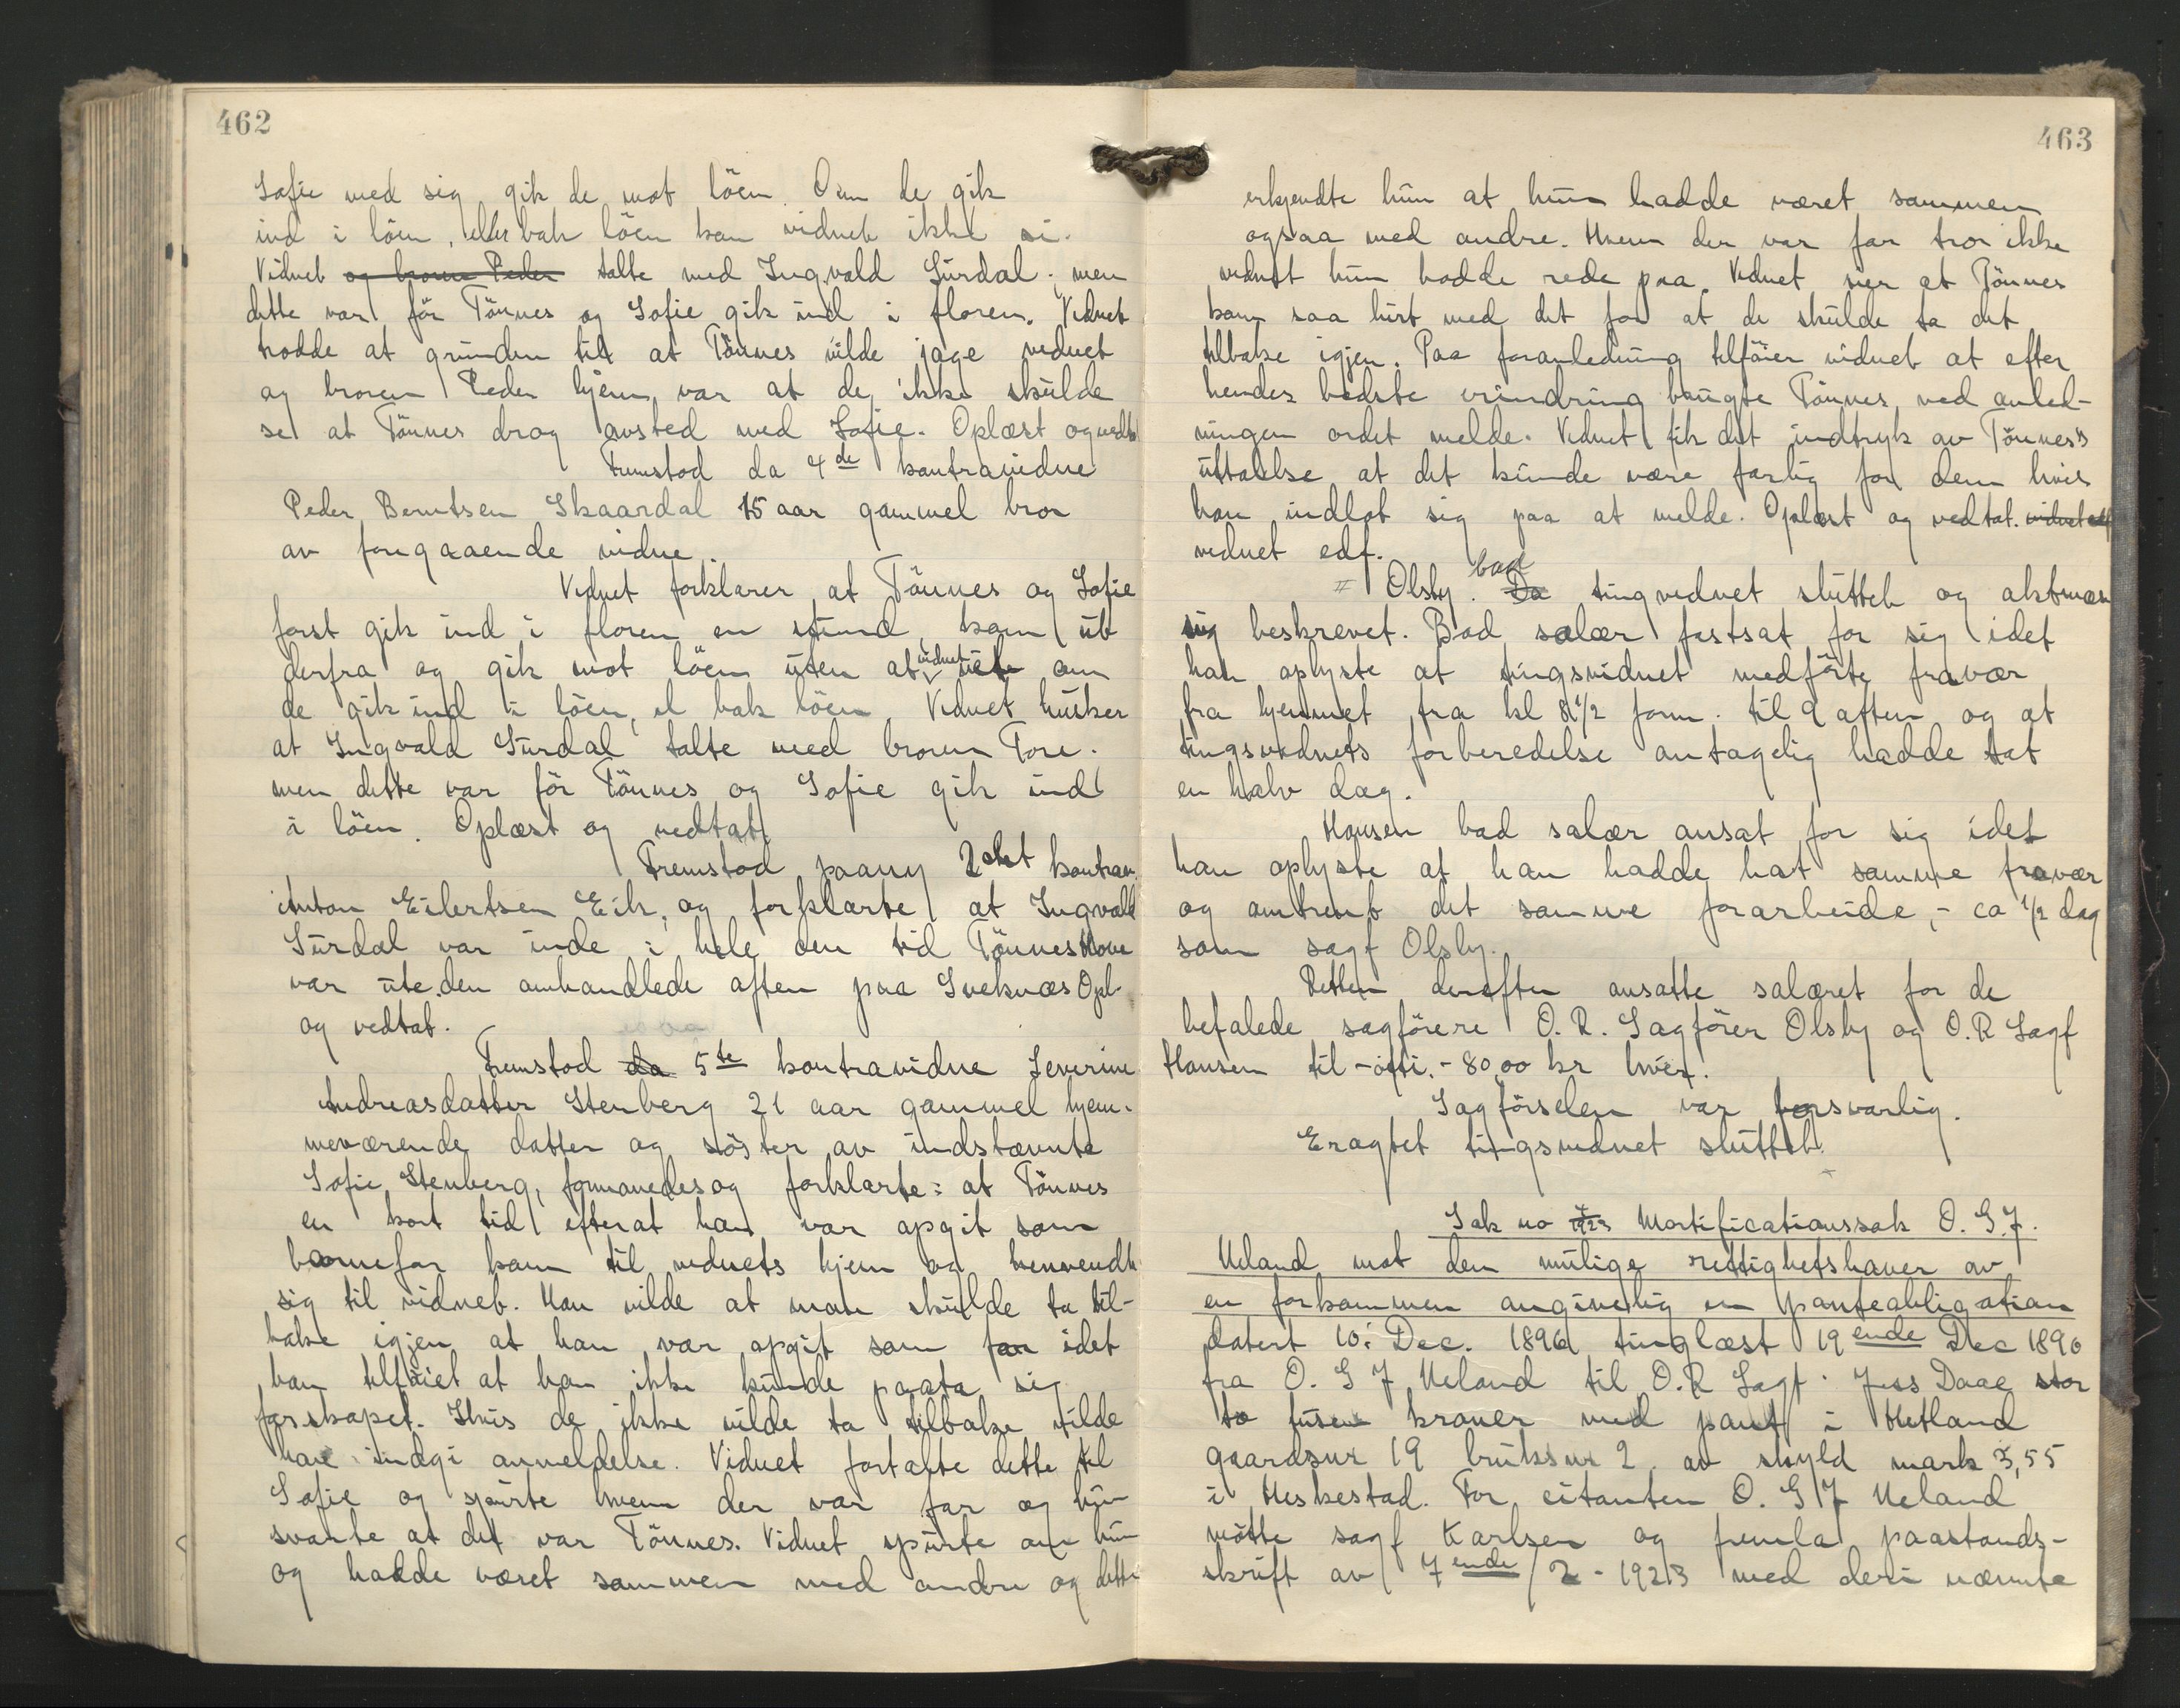 462
Sofie med sig gik de mot löen. Om de gik
ind i löen, eller bak löen kan vidnet ikke si.
Vidnet og broren Peder talte med Ingvald Surdal; men
dette var för Tönnes og Sofie gik ind i floren. Vidnet
trodde at grunden til at Tönnes vilde jage vidnet
og broren Peder hjem, var at de ikke skulde
se at Tönnes drog avsted med Sofie. Oplæst og vedt
Fremstod da 4de kontravidne
Peder Berntsen Skaardal 15 aar gammel bror
av foregaaende vidne.
Vidnet forklarer at Tönnes og Sofie
först gik ind i floren en stund, kom ut
derfra og gik mot löen uten at vidnet om
de gik ind i löen, el bak löen. Vidnet husker
at Ingvald Surdal talte med broren Tore.
men dette var för Tönnes og Sofie gik ind
i löen. Oplæst og vedtat
Fremstod paany 2det kontrav.
Anton Eilertsen Eik, og forklarte at Ingvald
Surdal var inde i hele den tid Tönnes
var ute den omhandlede aften paa Opl.
og vedtat.
Fremstod da 5te kontravidne Severine
Andreasdatter Stenberg 21 aar gammel hjem-
meværende datter og söster av indstævnte
Sofie Stenberg, formanedes og forklarte: at Tönnes
en kort tid efterat han var opgit som
barnefar kom til vidnets hjem og henvendte
sig til vidnet. Han vilde at man skulde ta til-
bake igjen at han var opgit som far idet
han tilföiet at han ikke kunde paata sig
farskapet. Hvis de ikke vilde ta tilbake vilde
han indgi anmeldelse. Vidnet fortalte dette til
Sofie og spurte hvem der var far og hun
svarte at det var Tönnes. Vidnet spurte om hun
og hadde været sammen med andre og dette
463
erkjendte hun at hun hadde været sammen
ogsaa med andre. Hvem der var far tror ikke
vidnet hun hadde rede paa. Vidnet sier at Tönnes
kom saa hist med det for at de skulde ta det
tilbake igjen. Paa foranledning tilföier vidnet at efter
hendes bedste erindring brugte Tönnes ved anled-
ningen ordet melde. Vidnet fik det indtryk av Tönnes's
uttalelse at det kunde være farlig for dem hvis
han indlot sig paa at melde. Oplæst og vedtat. vidnet edf
vidnet edf.
Olsby. Da bad tingvidnet sluttet og aktmæs
sig beskrevet. Bad salær fastsat for sig idet
han oplyste at tingsvidnet medförte fravær
fra hjemmet fra kl 8 1/2 form. til 9 aften og at
tingsvidnets forberedelse antagelig hadde tat
en halv dag.
Hansen bad salær ansat for sig idet
han oplyste at han hadde hat samme fravær
og omtrent det samme forarbeide, - ca 1/2 dag
som sagf Olsby.
Retten derefter ansatte salæret for de
befalede sagförere O.R. Sagförer Olsby og O.R Sagf
Hansen til -otti.- 80,00 kr hver.
Sagförselen var forsvarlig.
Eragtet tingsvidnet sluttet.
Sak no Mortificationssak O. G. J.
Ueland mot den mulige rettighetshaver av
en forkommen angivelig en panteobligation
datert 10: Dec. 1896 tinglæst 19ende Dec 1896
fra O. G J Ueland til O.R Sagf. Jess Daae stor
to tusen kroner med pant i Hetland
gaardsnr 19 bruksnr 2 av skyld mark 3,55
i Heskestad. For citanten O. G J Ueland
mötte sagf Karlsen og fremla paastands-
skrift av 7ende/2 - 1923 med deri nævnte